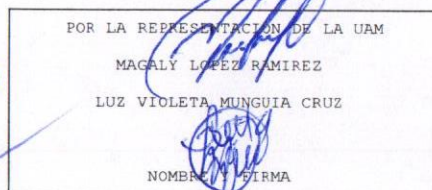 POR LA REPRESENTACIÓN DE LA UAM
MAGALY LOPEZ RAMIREZ
LUZ VIOLETA MUNGUIA CRUZ
NOMBRE Y FIRMA